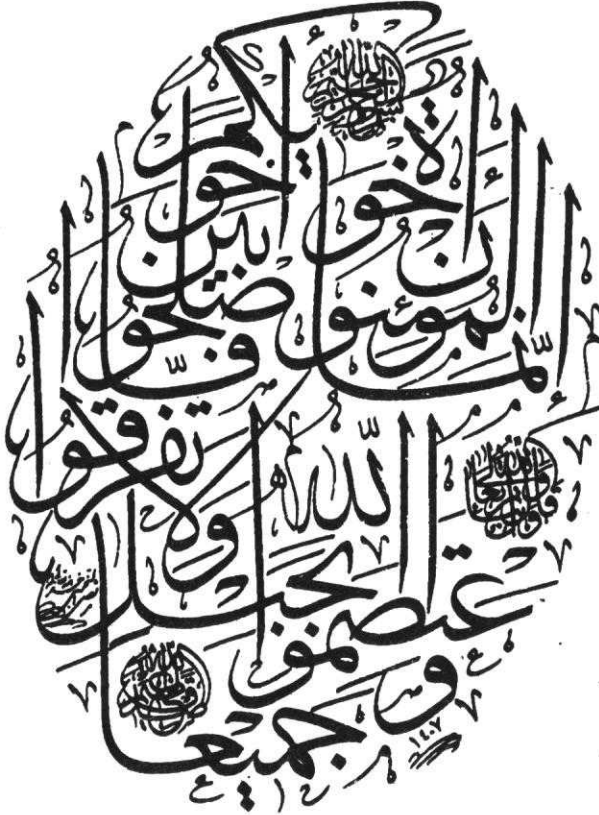 إنما المؤمنون إخوة
فأصلحوا بين أخويكم
واعتصموا بحبل الله
جميعا ولا تفرقوا
١٤٠٧